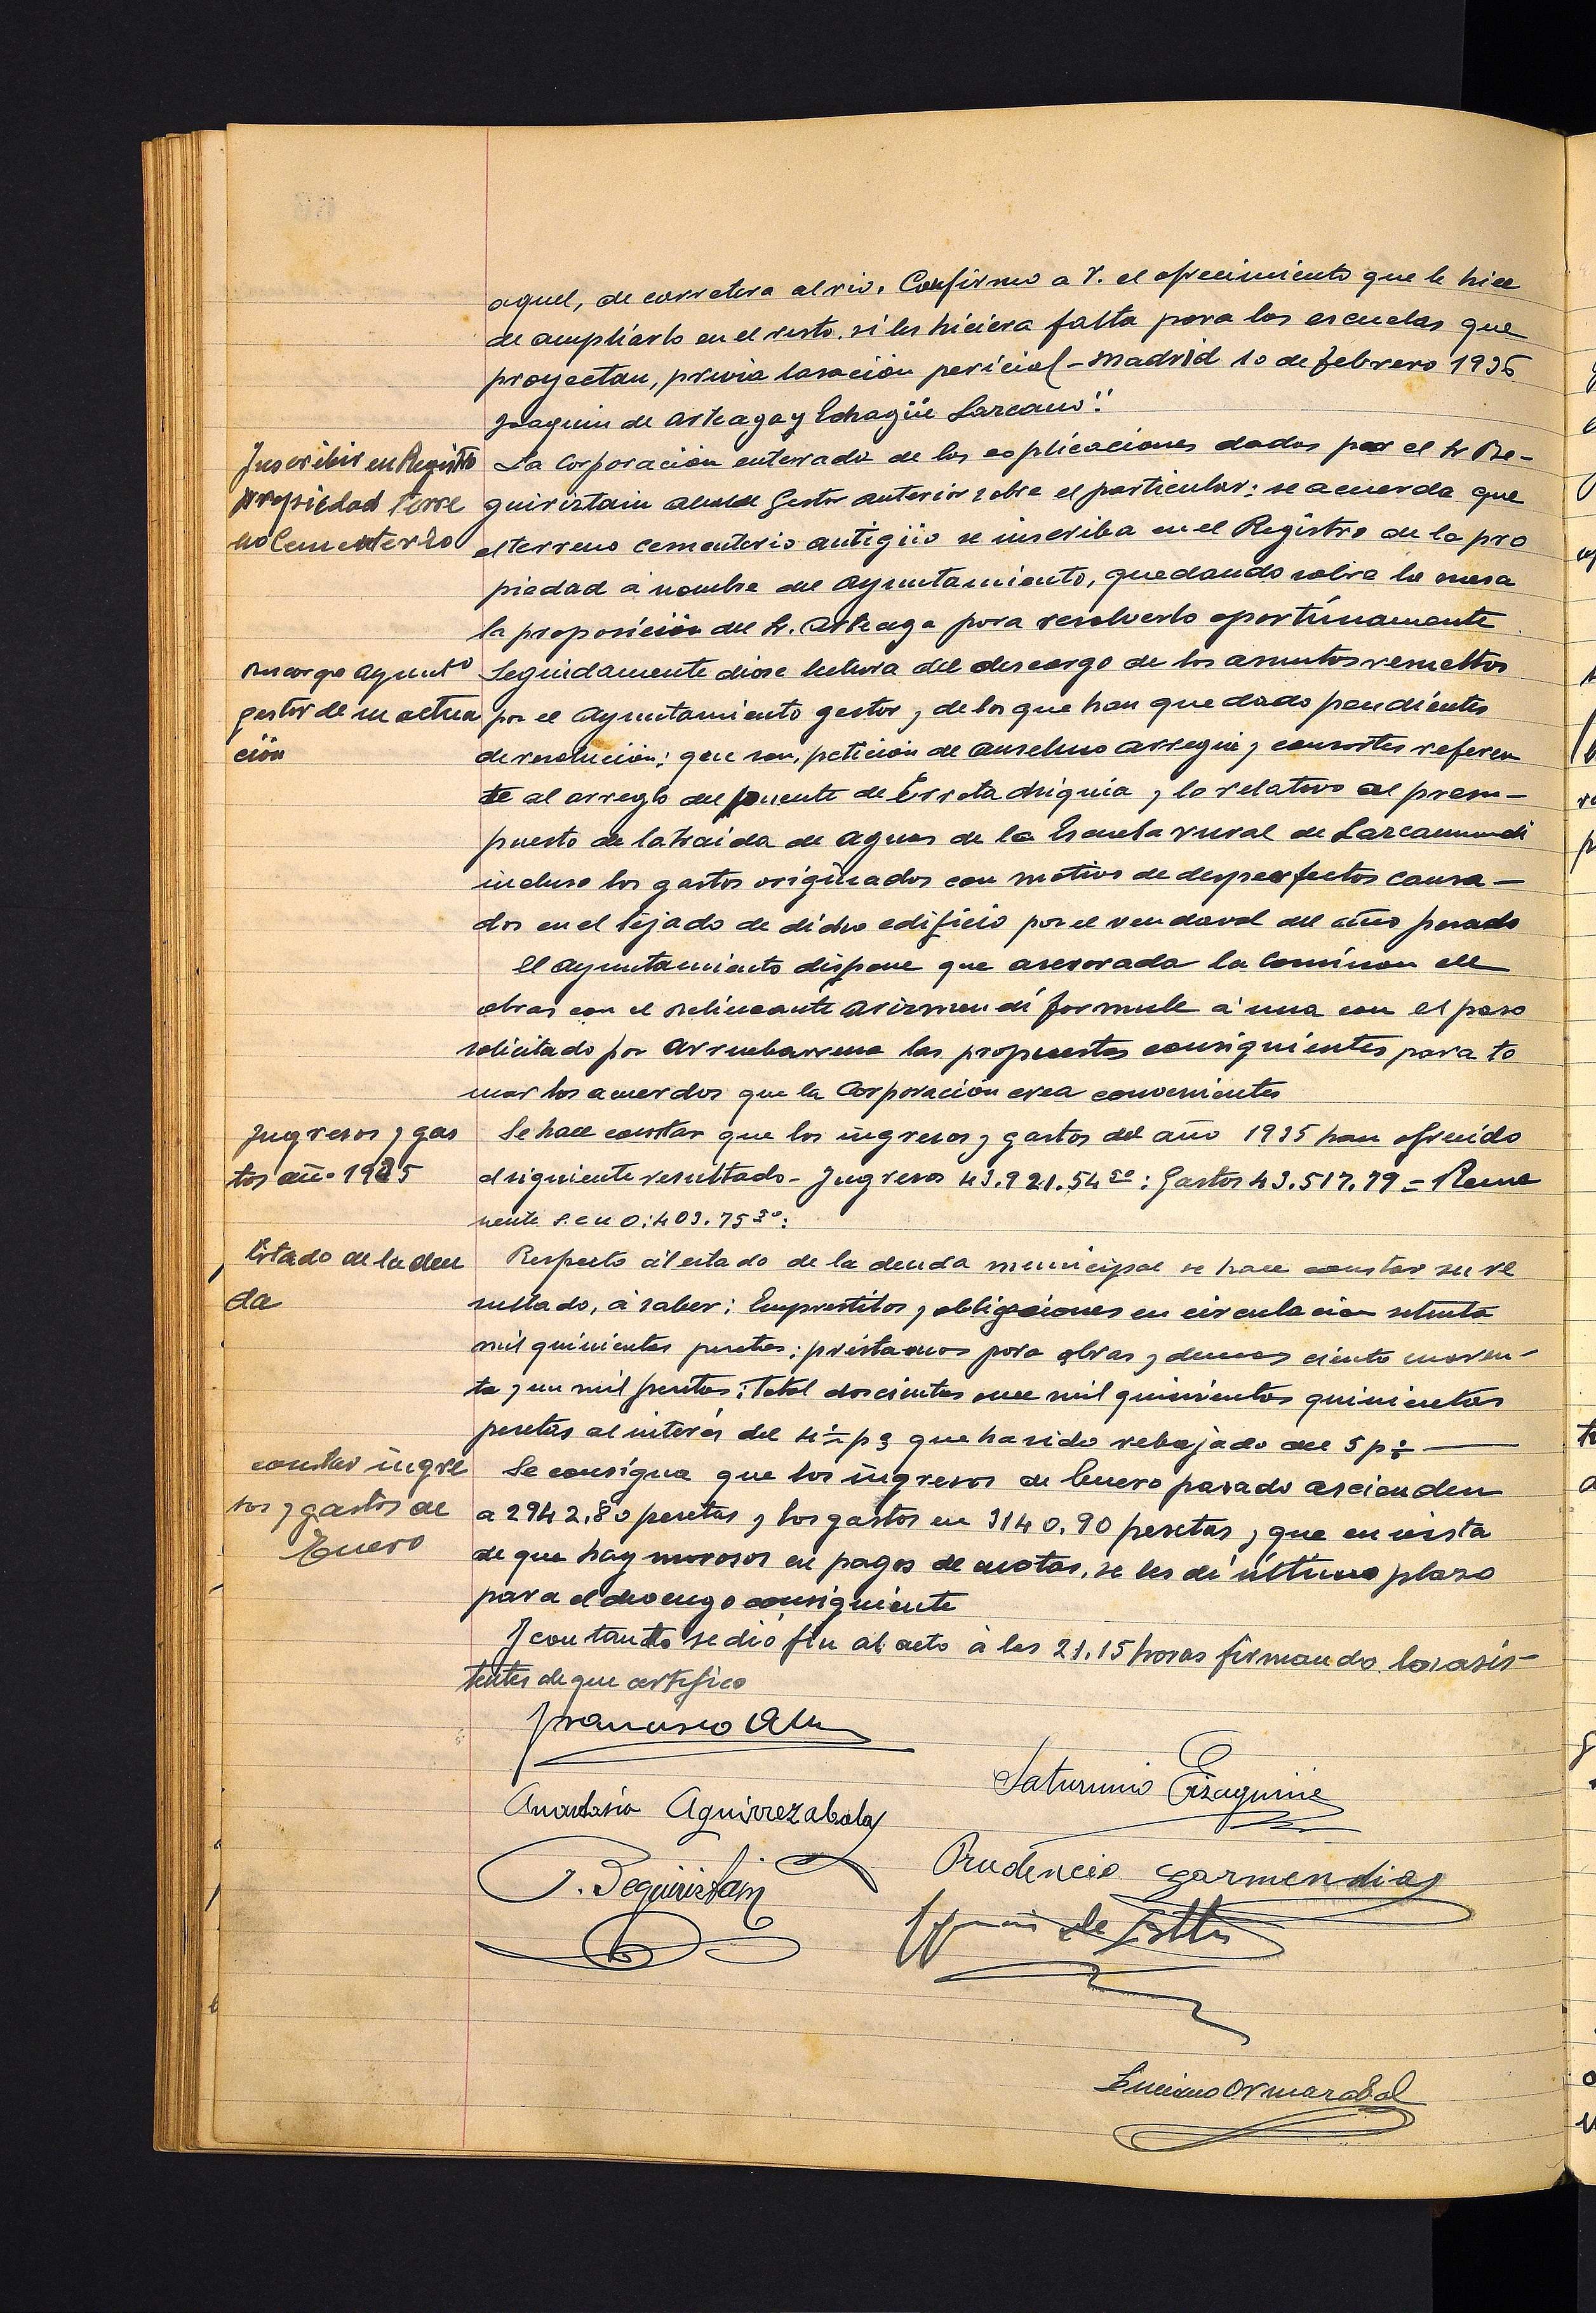 aquel, de carretera al rio. Confirmo a V. el ofrecimiento que le hice
de ampliarlo en el resto, si les hiciera falta para las escuelas que
proyectan, previa tasación pericial - Madrid 10 de febrero 1936
Joaquin de Arteaga y Echagüe Lazcano".
Inscribir en Registro
propiedad terre
no Cementerio
La Corporación enterada de las explicaciones dadas por el Sr Be-
guiristain alcalde Gestor anterior sobre el particular: se acuerda que
el terreno cementerio antigüo se inscriba en el Registro de la pro
piedad á nombre del Ayuntamiento, quedando sobre la mesa
la proposición del Sr. Arteaga para resolverlo oportúnamente
Descargo Ayuntº
gestor de su actua
ción
Seguidamente diose lectura del descargo de los asuntos resueltos
por el Ayuntamiento gestor y de los que han quedado pendientes
de resolución: que son, petición de Anselmo Arregui y consortes referen
te al arreglo del puente de Errota chiquia y lo relativo al presu-
puesto de la traida de aguas de la Escuela rural de Lazcaomendi
incluso los gastos originados con motivo de desperfectos causa-
dos en el tejado de dicho edificio por el vendaval del año pasado
El Ayuntamiento dispone que asesorada la Comision de
obras con el delineante Arizmendi formule á una con el paso
solicitado por Arruebarrena las propuestas consiguientes para to
mar los acuerdos que la Corporación crea convenientes
Ingresos y gas
tos año 1935
Se hace constar que los ingresos y gastos del año 1935 han ofrecido
el siguiente resultado - Ingresos 43.921.54 : Gastos 43.517.79 = Rema
nente 403.75
Estado de la deu
da
Respecto al estado de la deuda municipal se hace constar su re
sultado, á saber: Emprestitos y obligaciones en circulacion setenta
mil quinientas pesetas: préstamos para obras y demas ciento cuaren-
ta y un mil pesetas: Total doscientas once mil quinientas quinientas
pesetas al interés del que ha sido rebajado del 5 p%
constar ingre
sos y gastos de
Enero
Se consigna que los ingresos de Enero pasado ascienden
a 2942,80 pesetas y los gastos en 3140.90 pesetas y que en vista
de que hay morosos en pagos de cuotas, se les dé último plazo
para el devengo consiguiente
Y con tanto se dió fin al acto á las 21.15 horas firmando los asis-
tentes de que certifico
Francisco
Saturnino Eizaguirre
Anastasio Aguirrezabala
Prudencio Garmendia
J. Beguiristain
de
Luciano Ormazabal